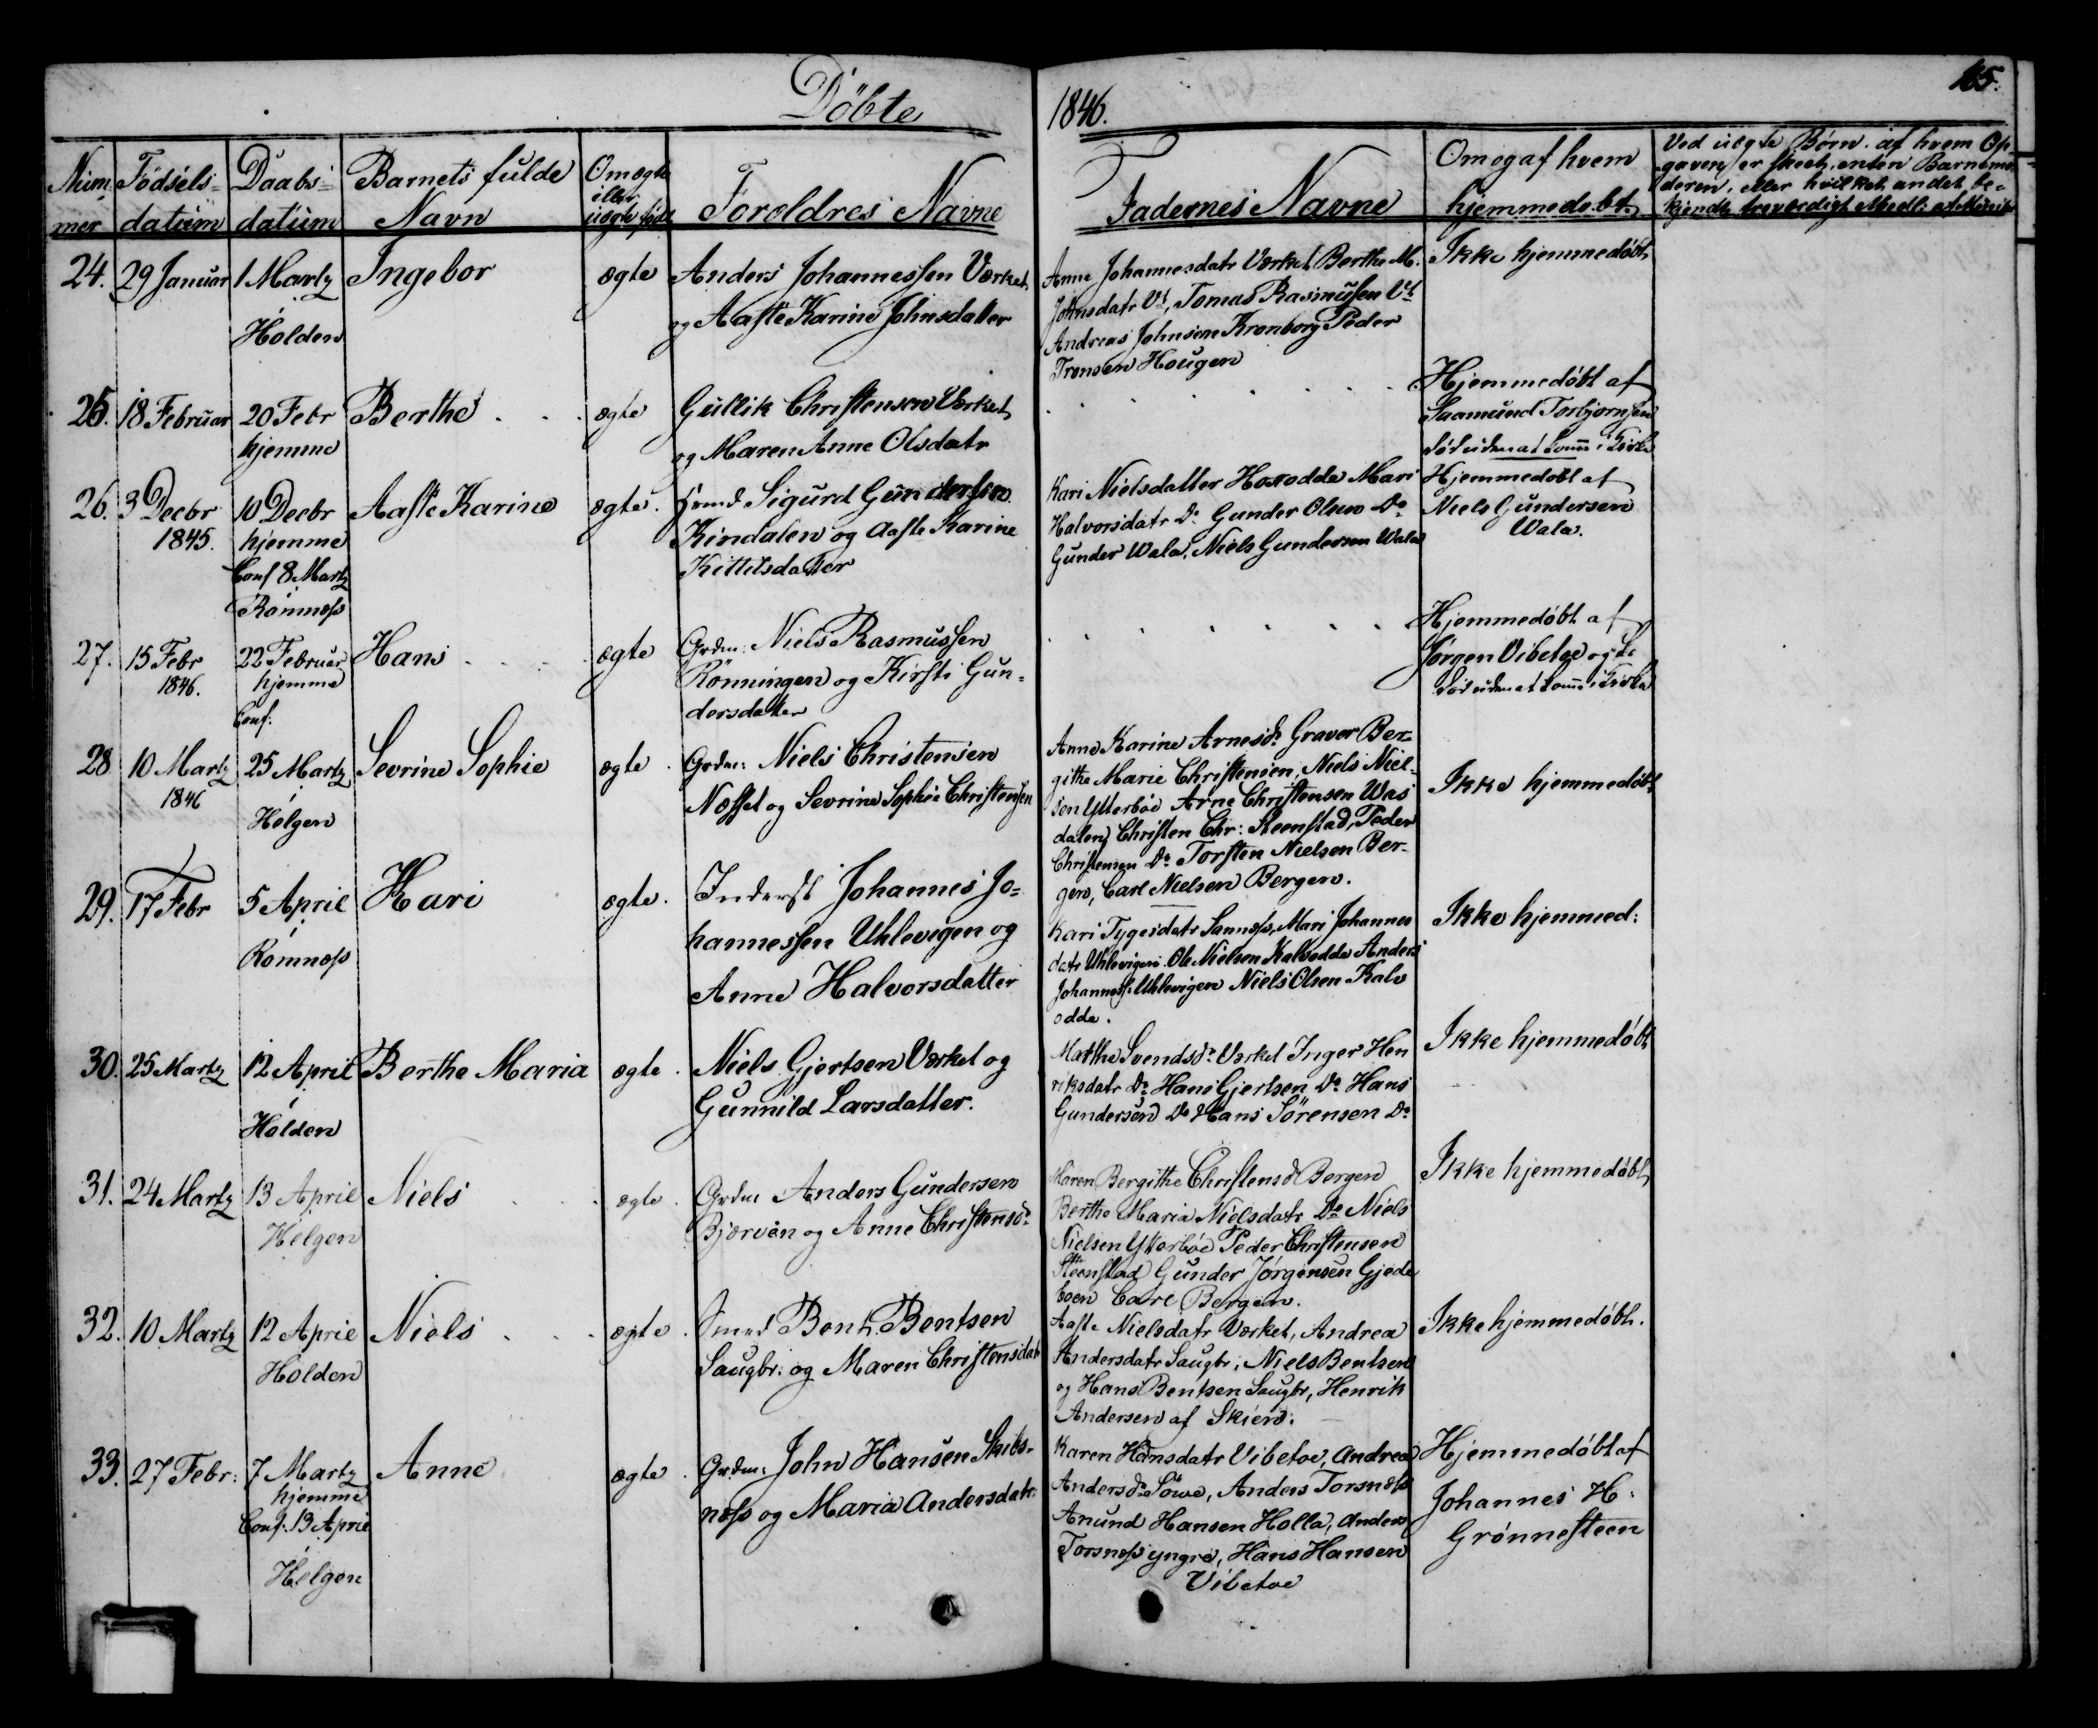 Döbte
1846.
165.
Num
mer
Fødsels-
datum
Daabs-
datum
Barnets fulde
Navn
Om ægte
eller
uægte født
Foreldres Navne
Fadernes Navne
Om og af hvem
hjemmedøbt
Ved uegte Børn. af hvem Op-
gaven er skeet, enten Barnemo-
deren, eller hvilket andet, be-
kjendt troværdigt Medl: af Menih
24.
29 Januar
1 Martz
i
Holden
Ingebor
ægte
Anders Johannessen Værket
og Aaste Karine Johnsdatter
Anne Johannesdatr Værket, Berthe M.
Johnsdatr Vt, Tomas Rasmussen Vt
Andreas Johnsen Kronborg Peder
Tronsen Hougen
Ikke hjemmedøbt
25.
18 Februar
20 Febr
hjemme
Berthe
ægte
Gullik Christensen Værket
og Maren Anne Olsdatr
Hjemmedøbt af
Saamund Torbjørnsen
død uden at komme i Kirke
26.
3 Decbr
1845.
10 Decbr
hjemme
Conf 8 Martz
i
Romnæss
Aaste Karine
ægte.
Sigurd Gundersen
Kindalen og Aaste Karine
Kittilsdatter
Kari Nielsdatter Hoxodda Mari
Halvorsdatr Do Gunder Olsen Do
Gunder Wala, Niels Gundersen Wala
Hjemmedøbt af
Niels Gundersen
Wala.
27.
15 Febr
1846.
22 Februar
hjemme
Conf:
Hans
ægte
Grdm: Niels Rasmussen
Rönningen og Kirsti Gun-
dersdatter
Hjemmedøbt af
Jørgen Vibetoe og
død uden at komme i Kirke
28
10 Martz
1846
25 Martz
i
Helgen
Sevrine Sophie
ægte
Grdm: Niels Christensen
Næsset og Sevrine Sophie Christensen
Anne Karine Arnesdr Graver Ber-
githe Marie Christensen, Niels Niel-
sen Ytterböe Arne Christensen Was
dalen, Christen Chr: Steenstad, Peder
Christensen Do Torsten Nielsen Ber-
gen, Carl Nielsen Bergen.
Ikke hjemmedøbt
29.
17 Febr
5 April
i
Romnæss
Kari
ægte.
Inderst Johannes Jo-
hannessen Uhlevigen og
Anne Halvorsdatter
Kari Tygesdatr Sannæss, Mari Johannes
datr Uhlevigen. Ole Nielsen Kalvodda Anders
Johanness: Uhlevigen Niels Olsen Kalv
odda.
Ikke hjemmed:
30.
25 Martz
12 April
i
Holden
Berthe Maria
ægte
Niels Gjertsen Værket og
Gunnild Larsdatter.
Marthe Svendsdr Værket Inger Hen
riksdatr Do Hans Gjertsen Do Hans
Gundersen Do Hans Sörensen Do
Ikke hjemmedøbt
31.
24 Martz
13 April
Helgen
Niels
ægte
Grdm Anders Gundersen
Bjærven og Anne Christensdr
Maren Bergithe Christensd Bergen
Berthe Maria Nielsdatr Do Niels
Nielsen Ytterböe Peder Christensen
Steenstad Gunder Jørgensen Gjede
boen Carl Bergen.
Ikke hjemmedøbt
32.
10 Martz
12 April
Holden
Niels
ægte
Smed Bent Bentsen
Saugbr: og Maren Christensdatr
Aaste Nielsdatr Værket, Andrea
Andersdatr Saugbr; Niels Bentsen
og Hans Bentsen Saugbr, Henrik
Andersen af Skien.
Ikke hjemmedøbt.
33.
27 Febr:
7 Martz
hjemme
Conf: 13 April
i
Helgen
Anne
ægte
Grdm: John Hansen Skibs-
næss og Maria Andersdatr
Karen Hansdatr Vibetoe, Andrea
Andersdr Söwe, Anders Torsnæss
Anund Hansen Holla, Anders
Torsnæss yngre, Hans Hansen
Vibetoe
Hjemmedøbt af
Johannes H.
Grønnesteen